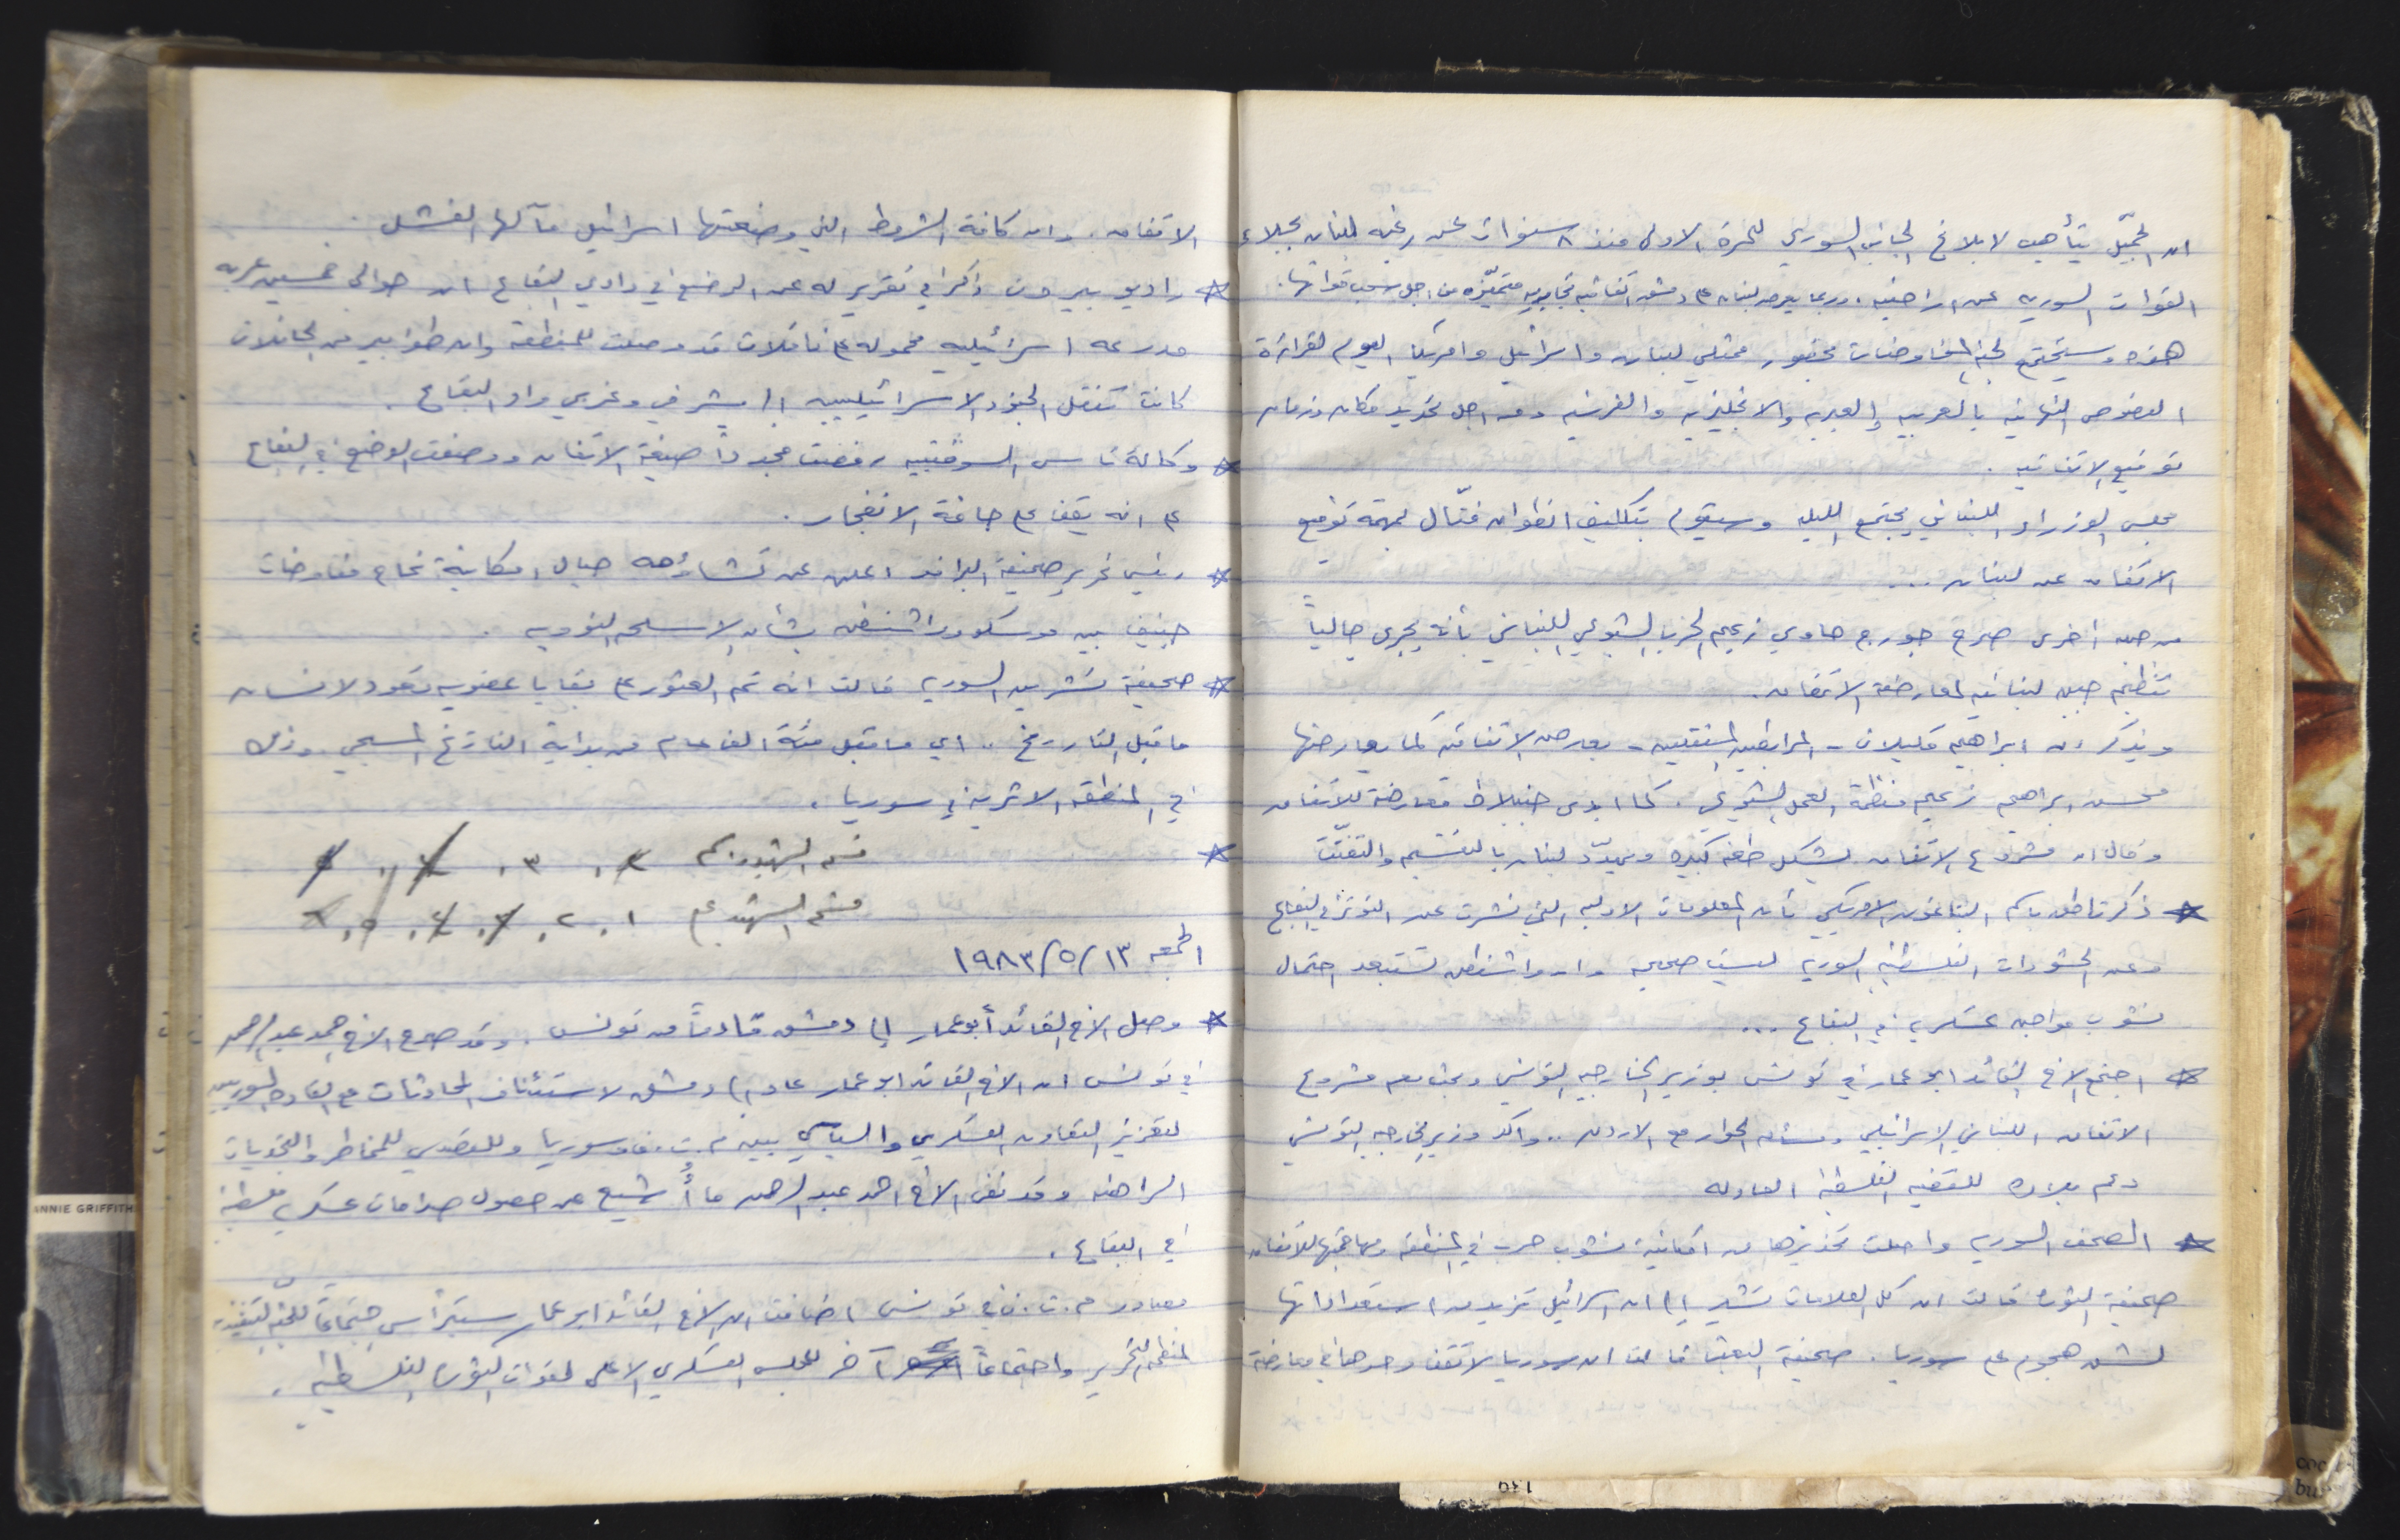 ان الجميّل يتأهب لابلاغ الجانب السوري للمرة الاولى منذ ٨ سنوات عن رغبه لبنان بجلاء
القوات السوريه عن اراضيه. وربما يعرض لبنان على دمشق اتفاقيه تجاريه متميّزه من اجل سحب قواتها.
هذه وستجتمع لجنة المفاوضات بحضور ممثلي لبنان واسرائيل وامريكا اليوم لقراءة
النصوص النهائيه بالعربيه والعبريه والانجليزيه والفرنسيه ومن اجل تحديد مكان وزمان
توقيع الاتفاقيه.
مجلس الوزراء اللبناني يجتمع الليله وسيقوم بتكليف انطوان فتّال لمهمة توقيع
الاتفاق عن لبنان...
من جهه اخرى صرح جورج حاوي زعيم الحزب الشيوعي اللبناني بأنه يجرى حالياً
تنظيم جبهه لبنانيه لمعارضة الاتفاق.
ويذكر ان ابراهيم قليلات - المرابطين المستقلين - يعارض الاتفاقيه كما يعارضها
محسن ابراهيم زعيم منظمة العمل الشيوعي. كما ابدى جنبلاط معارضة للاتفاق
وقال ان مشروع الاتفاق يشكل طعنه كبيره ويهدّد لبنان بالتقسيم والتفتّت
* ذكر ناطق باسم البنتاغون الامريكي بأن المعلومات الاوليه التي نشرت عن التوتر في البقاع
وعن الحشودات الفلسطينيه السوريه ليست صحيحه وان واشنطن تستبعد احتمال
نشوب مواجهه عسكريه في البقاع...
* اجتمع الاخ القائد ابو عمار في تونس بوزير الخارجيه التونسي وبحث معه مشروع
الاتفاق اللبناني الاسرائيلي ومسأله الحوار مع الاردن.. واكد وزير الخارجيه التونسي
دعم بلاده للقضيه الفلسطينيه العادله
* الصحف السوريه واصلت تحذيرها من امكانية نشوب حرب في المنطقه ومهاجمتها للاتفاق
صحيفة الثوره قالت ان كل العلامات تشير الى ان اسرائيل تزيد من استعداداتها
لشن هجوم على سوريا. صحيفة البعث قالت ان سوريا لا تقف وحدها في معارضة
الاتفاق. وان كافة الشروط التي وضعتها اسرائيل مآلها الفشل.
* راديو بيروت ذكر في تقرير له عن الوضع في وادي البقاع ان حوالى خمسين عربه
مدرعه اسرائيليه محموله على ناقلات قد وصلت للمنطقه وان طوابير من الحافلات
كانت تنقل الجنود الاسرائيليين الى شرقي وغربي واد البقاع.
* وكالة تاس السوفتييه رفضت مجدداً صيغة الاتفاق ووصفت الوضع في البقاع
على انه يقف على حافة الانفجار.
* رئيس تحرير صحيفة البرافدا اعلن عن تشاؤمه حيال امكانية نجاح مفاوضات
جنيف بين موسكو وواشنطن بشأن الاسلحه النوويه.
* صحيفة تشرين السوريه قالت انه تم العثور على بقايا عضويه تعود لانسان
ما قبل التاريخ.. اي ما قبل مئة الف عام من بداية التاريخ المسيحي. وذلك
في المنطقه الاثريه في سوريا.
* قسم الشهيد ٣.
قسم الشهيد ١. ٢.
الجمعه ١٣/٥/١٩٨٣
* وصل الاخ القائد أبو عمار إلى دمشق قادماً من تونس. وقد صرح الاخ احمد عبد الرحمن
في تونس ان الاخ القائد ابو عمار عاد الى دمشق لاستئناف المحادثات مع القاده السوريين
لتعزيز التعاون العسكري والسياسي بين م.ت.ف وسوريا وللتصدي للمخاطر والتحديات
الراهنه وقد نفى الاخ احمد عبد الرحمن ما أُشيع عن حصول صدامات عسكريه فلسطينيه
في البقاع.
مصادر م.ت.ف في تونس اضافت ان الاخ القائد ابو عمار سيترأس اجتماعاً للجنه التنفيذيه
لمنظمة التحرير واجتماعاً آخر للمجلس العسكري الاعلى لقوات الثوره الفلسطينيه.
ANNIE GRIFFITH
139